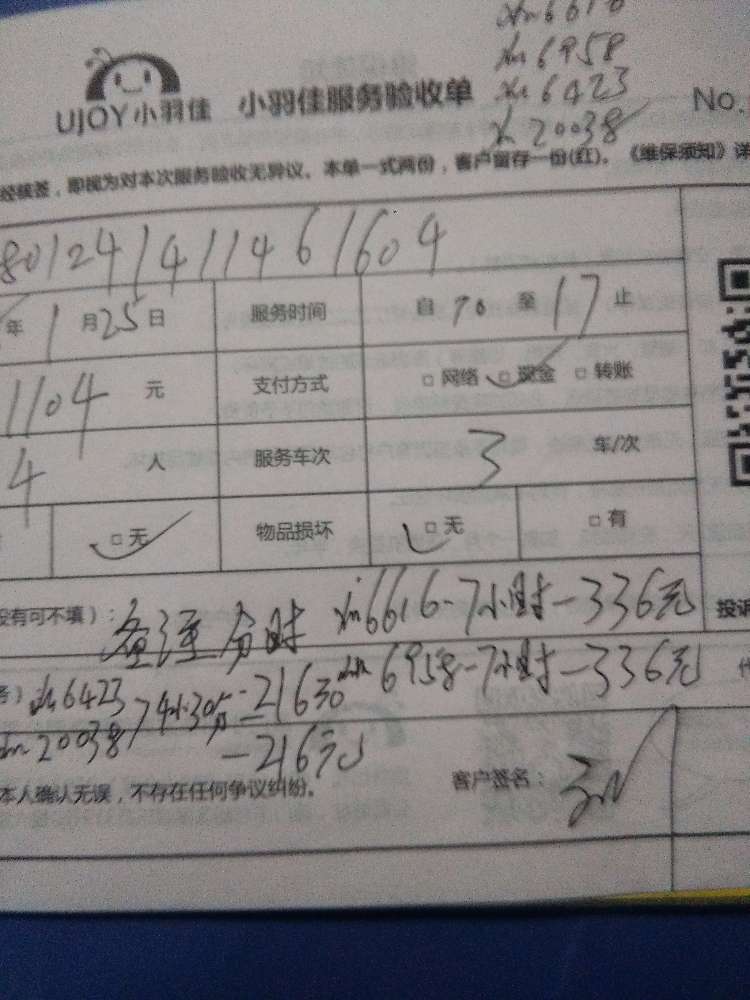 xn6616
xn6958
xn6423
xn20038
UJOY小羽佳 小羽佳服务验收单 No.
经核签，即视为对本次服务验收无异议。本单一式两份，客户留存一份(红)。《维保须知》详
80124141146 1604
年1月25日 服务时间 自 10 至 17 止
1104 元 支付方式 □网络 □现金 □转账
4 人 服务车次 3 车/次
□无 物品损坏 □无 □有
没有可不填）： 备注 分时 xn6616-7小时-336元 投诉
xn6423 74小30分-216元 xn6958-7小时-336元
xn20038 -216元
本人确认无误，不存在任何争议纠纷。 客户签名：